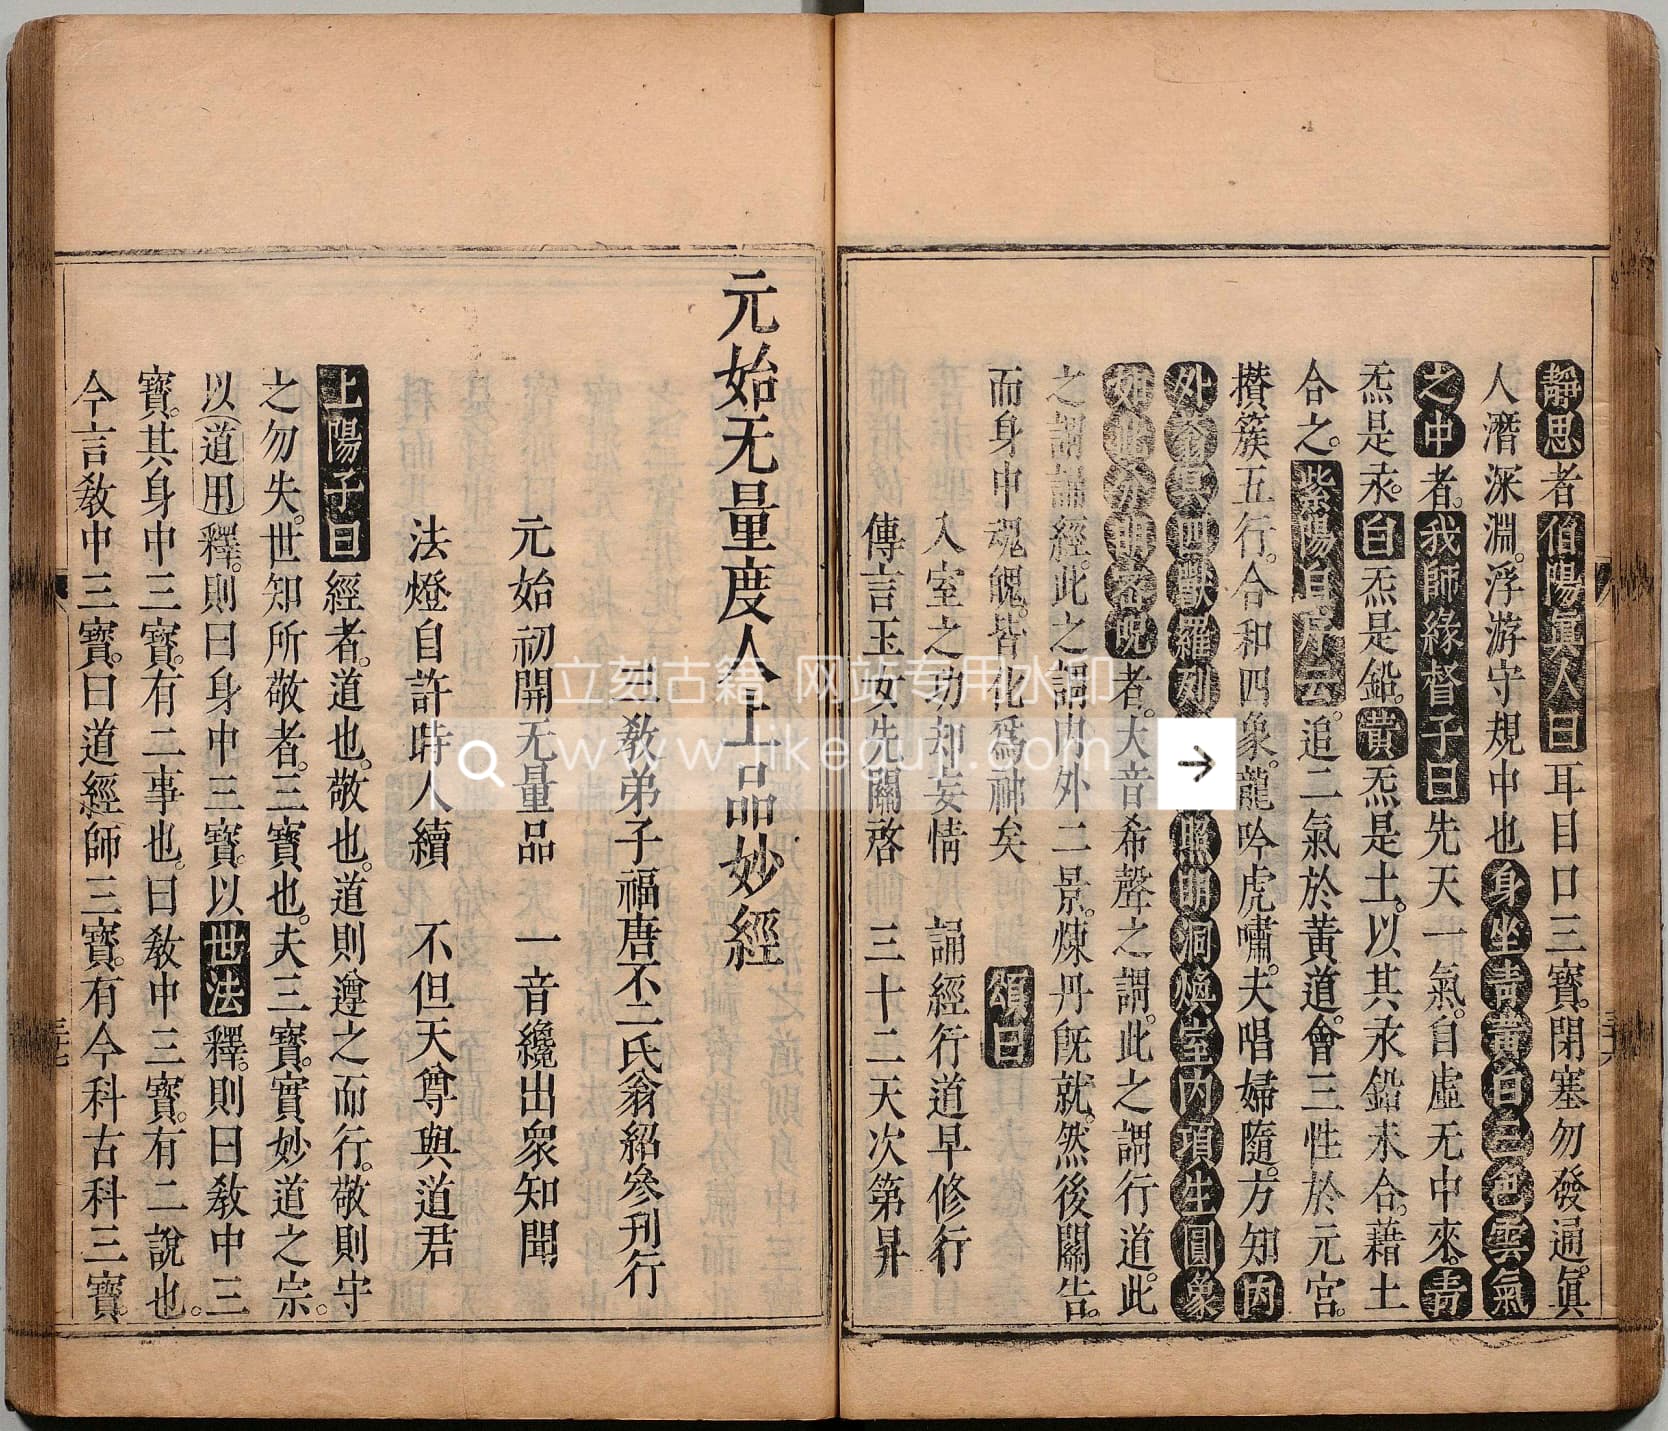 靜思者伯陽眞人曰耳目口三寶。閉塞勿發通。眞
人潛深淵。浮游守規中也身坐靑黃白三色雲氣
之中者。我師緣督子曰先天一氣。自虛无中來。靑
炁是汞。白炁是鉛。黃炁是土。以其汞鉛未合。藉土
合之。紫陽自序云。追二氣於黃道。會三性於元宮。
攅簇五行。合和四象。龍吟虎嘯。夫唱婦隨。方知內
外蓊冥四獸羅列照明洞煥室內項生圓象
如此分明密呪者。大音希聲之謂。此之謂行道。此
之謂誦經。此之謂內外二景。煉丹旣就。然後關告。
而身中魂魄。皆化爲神矣 頌曰
入室之功却妄情 誦經行道早修行
傳言玉女先關啓 三十二天次第昇
元始无量度人上品妙經
敎弟子福唐不二氏翁紹參刋行
元始初開无量品 一音纔出衆知聞
法燈自許時人續 不但天尊與道君
上陽子曰經者。道也。敬也。道則遵之而行。敬則守
之勿失。世知所敬者。三寶也。夫三寶。實妙道之宗。
以道用釋。則曰身中三寶。以世法釋。則曰敎中三
寶。其身中三寶。有二事也。曰敎中三寶。有二說也。
今言敎中三寶。曰道經師三寶。有今科古科三寶。
三十六
三十七
立刻古籍 网站专用水印
www.likeguji.com